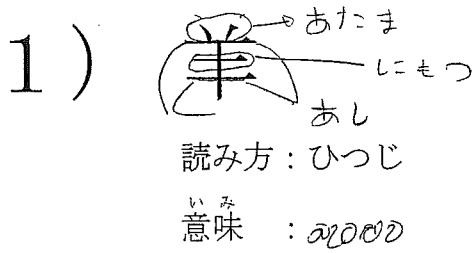 1) 羊
あたま
にもつ
あし
読み方:ひつじ
いみ
意味 :